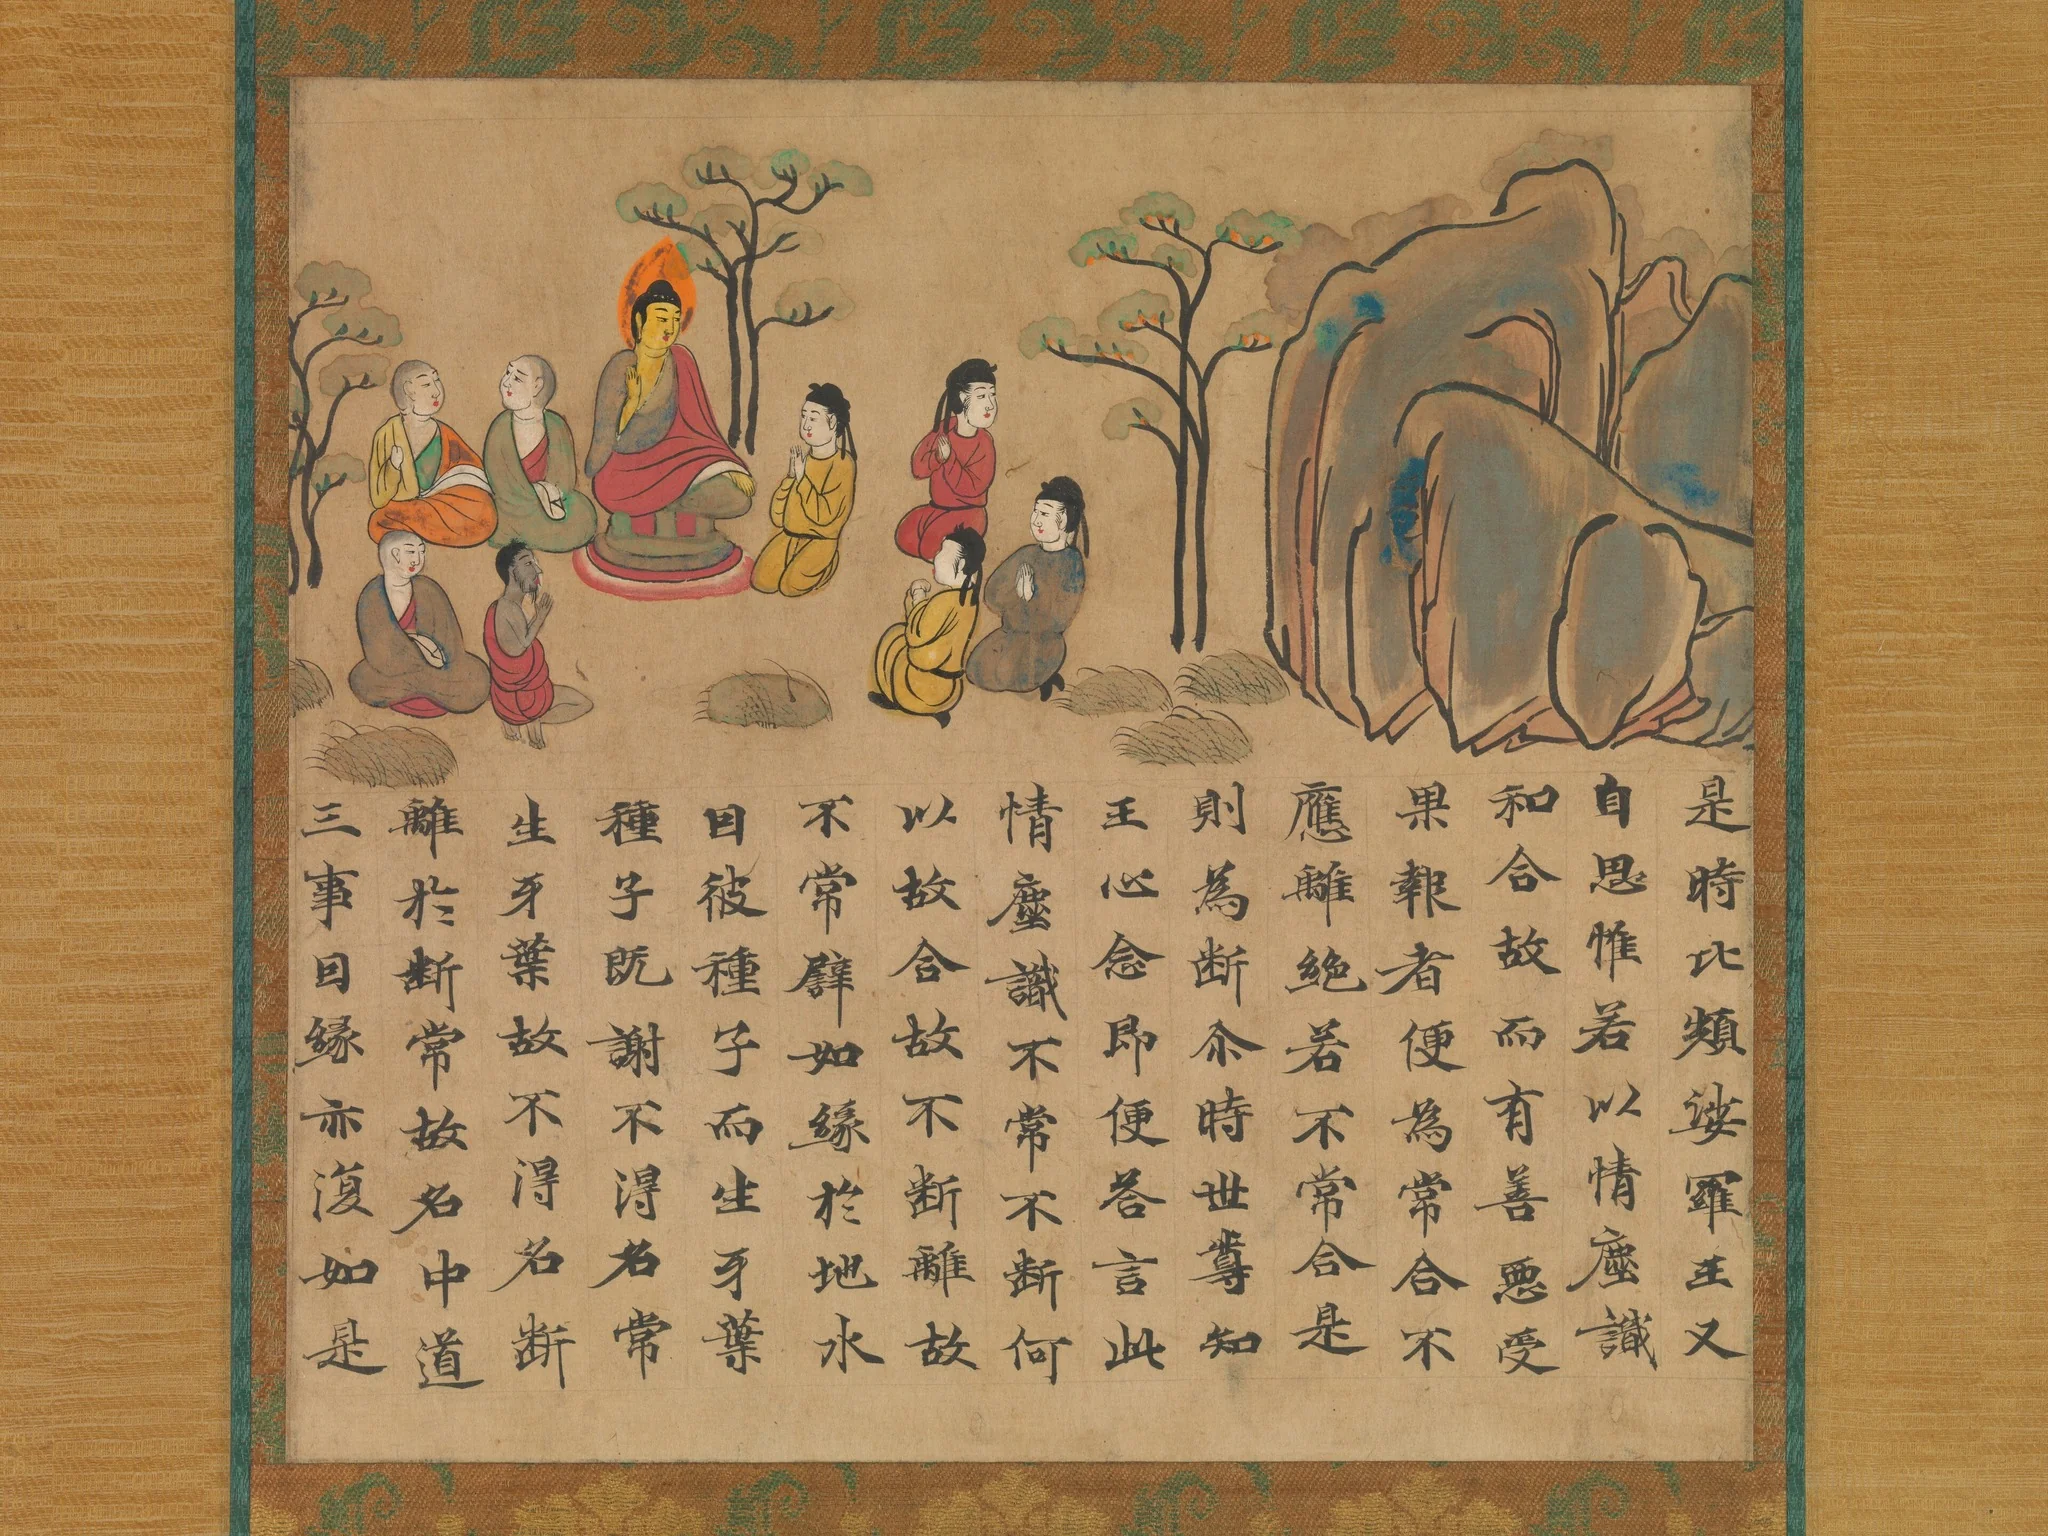 是時比頻娑羅王又
自思惟若以情塵識
和合故而有善惡受
果報者便為常合不
應離絶若不常合是
則為断尒時世尊知
王心念即便荅言此
情塵識不常不断何
以故合故不断離故
不常譬如縁於地水
因彼種子而生牙葉
種子既謝不得名常
生牙葉故不得名断
離於断常故名中道
三事因縁亦復如是